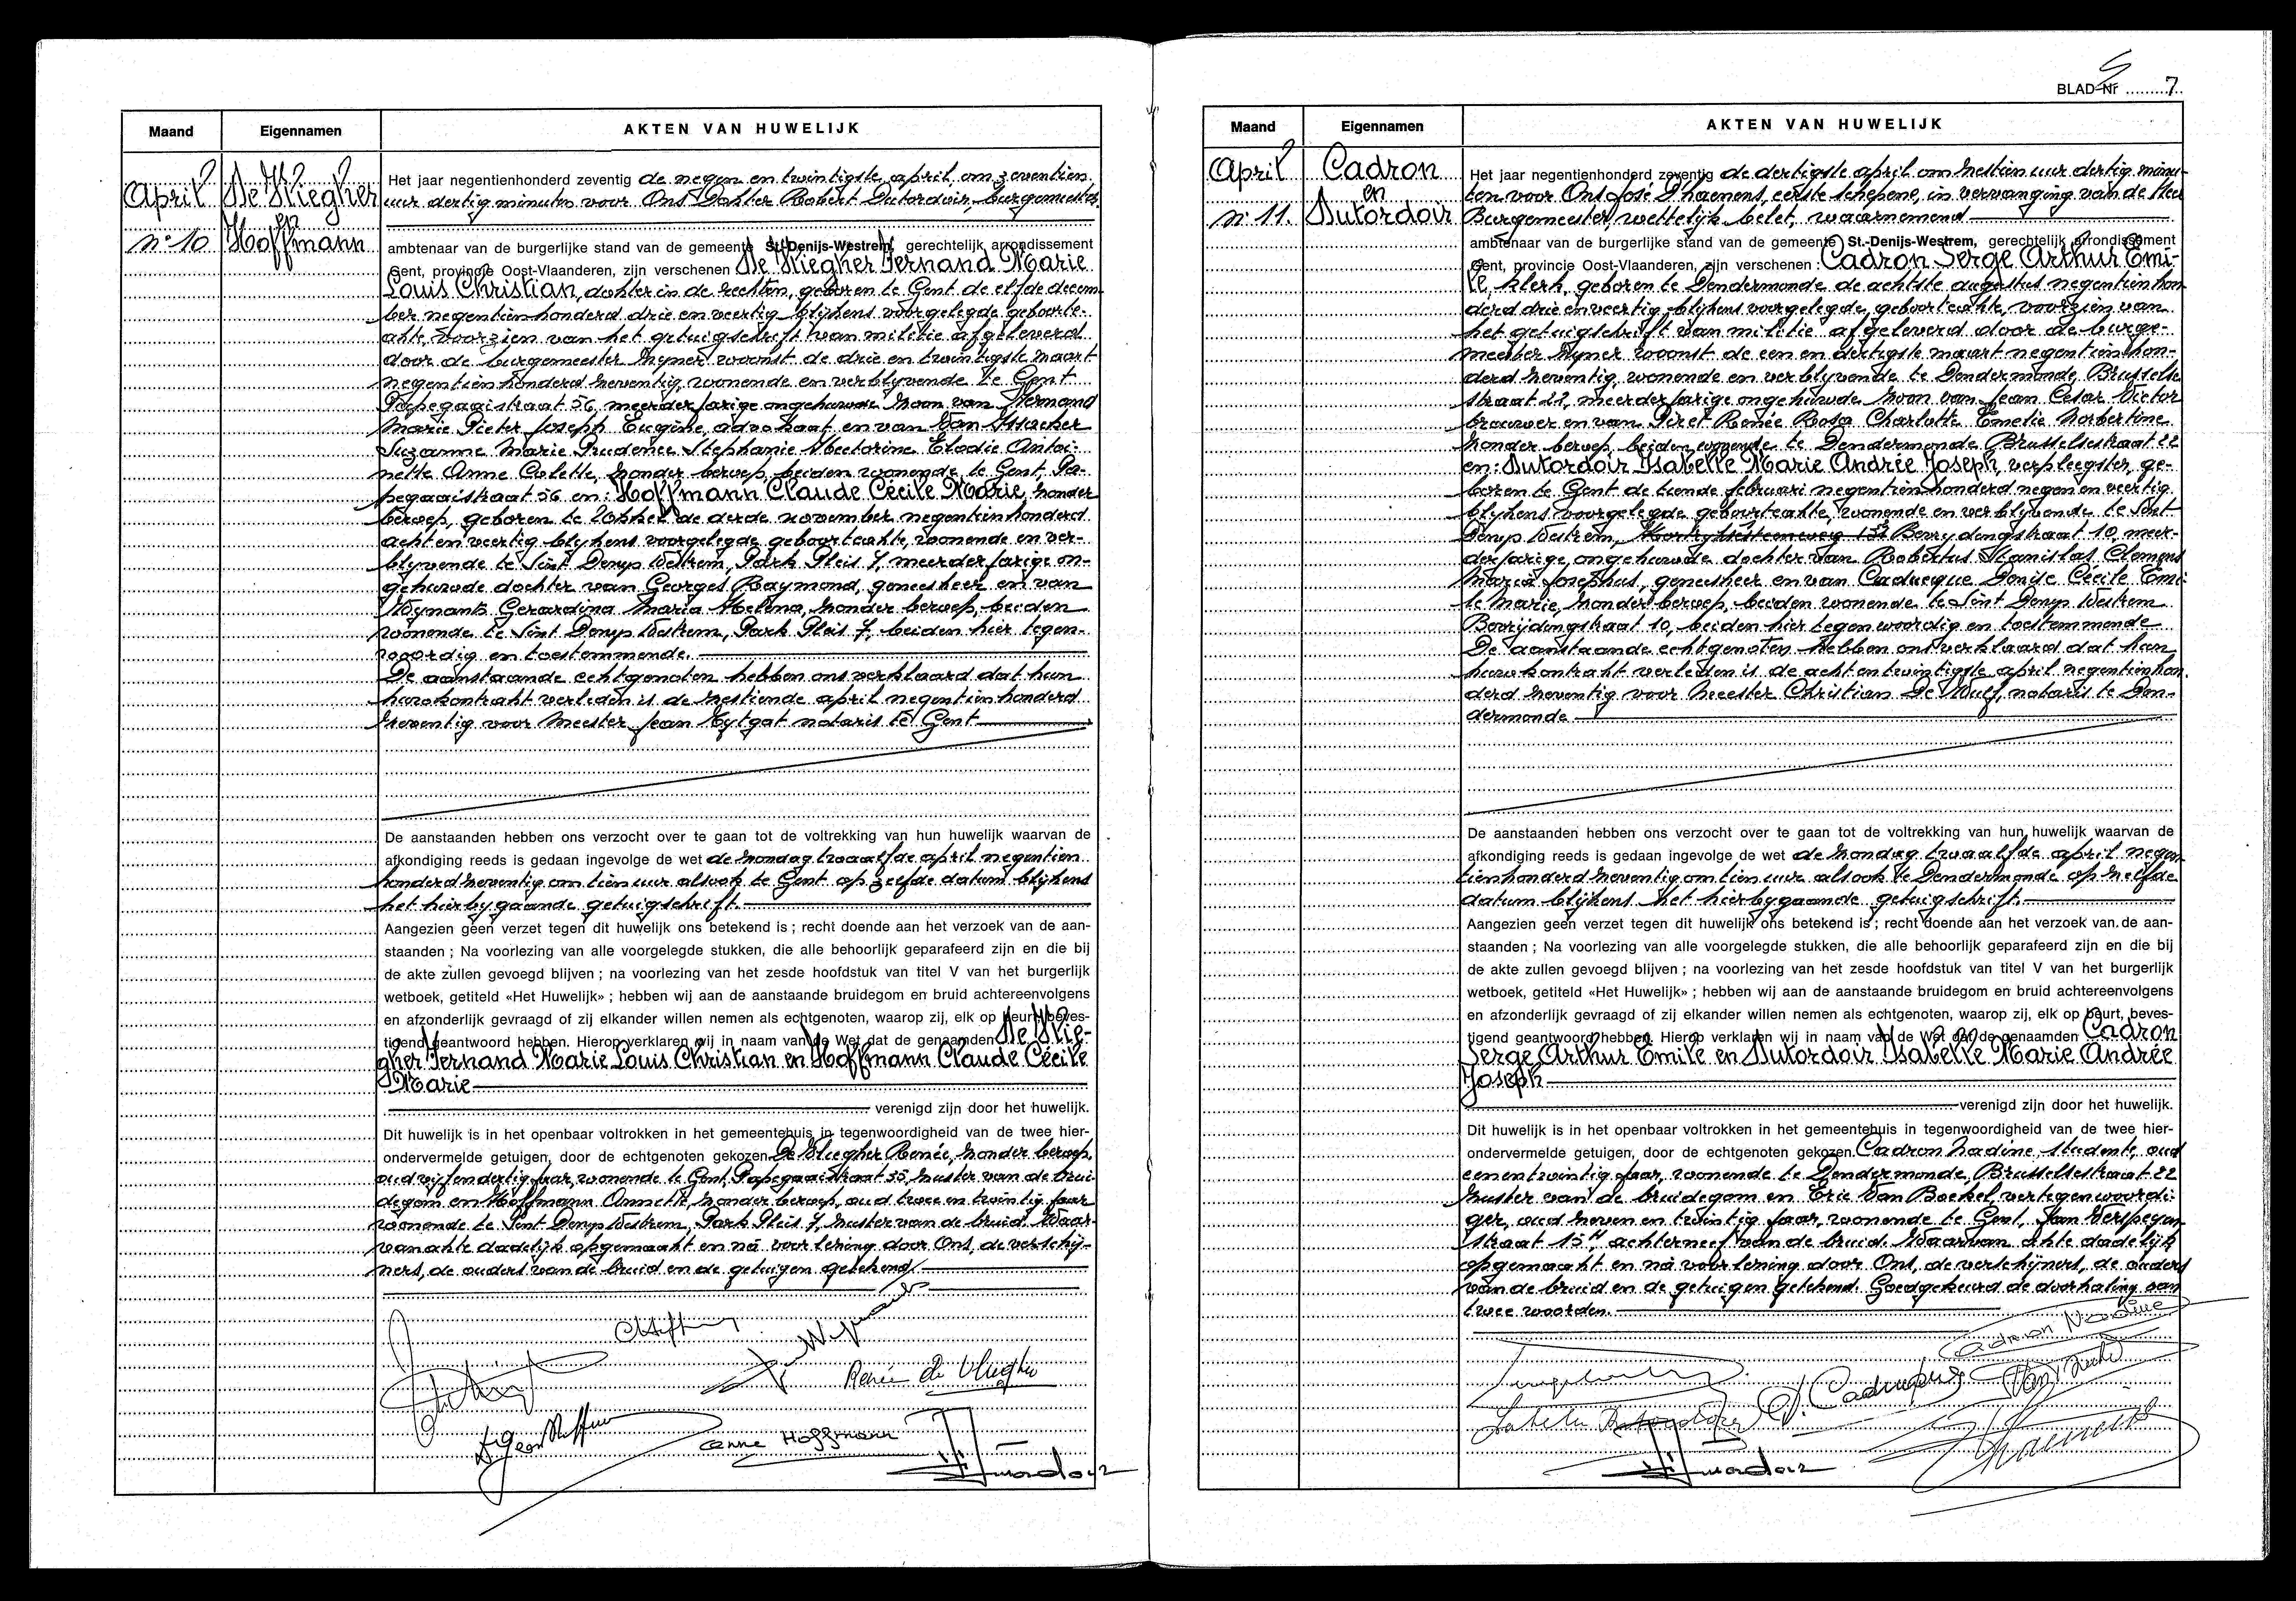 Maand
Eigennamen
AKTEN VAN HUWELIJK
April
n° 10
en
Hoffmann
Het jaar negentienhonderd zeventig de negen en twintigste april, om zeventien
uur dertig minuten voor Ons Dokter Robert Dutordoir, burgemeester
ambtenaar van de burgerlijke stand van de gemeente St.-Denijs-Westrem, gerechtelijk arrondissement
Gent, provincie Oost-Vlaanderen, zijn verschenen Fernand Marie
Louis Christian, dokter in de rechten, geboren te Gent de elfde decem-
ber negentienhonderd drie en veertig blijkens voorgelegde geboorte-
akte, voorzien van het getuigschrift van militie afgeleverd
door de burgemeester zijner woonst de drie en twintigste maart
negentienhonderd zeventig, wonende en verblyvende te Gent
Papegaaistraat 56, meerderjarige ongehuwde zoon van Hernand
Marie Pieter Joseph Eugène, advokaat en van Van Assche
Suzanne Marie Prudence Stephanie Hectorine Elodie Antoi-
nette Anne Colette, zonder beroep, beiden wonende te Gent, Pa-
pegaaistraat 56 en: Hoffmann Claude Cécile Marie, zonder
beroep, geboren te de derde november negentienhonderd
acht en veertig blykens voorgelegde geboorteakte, wonende en ver-
blyvende te Sint Denys Westrem, Park Pleis 7, meerderjarige on-
gehuwde dochter van Georges Raymond, geneesheer en van
Wynants Gerardina Maria Helena, zonder beroep, beiden
wonende te Sint Denys Westrem, Park Pleis 7, beiden hier tegen-
woordig en toestemmende.
De aanstaande echtgenoten hebben ons verklaard dat hun
huwkontrakt verleden is de zestiende april negentienhonderd
zeventig voor Meester Jean Uytgat notaris te Gent
De aanstaanden hebben ons verzocht over te gaan tot de voltrekking van hun huwelijk waarvan de
afkondiging reeds is gedaan ingevolge de wet de zondag twaalfde april negentien
honderd zeventig om tien uur alsook te Gent op zelfde datum blijkens
het hierbygaande getuigschrift.
Aangezien geen verzet tegen dit huwelijk ons betekend is ; recht doende aan het verzoek van de aan-
staanden ; Na voorlezing van alle voorgelegde stukken, die alle behoorlijk geparafeerd zijn en die bij
de akte zullen gevoegd blijven ; na voorlezing van het zesde hoofdstuk van titel V van het burgerlijk
wetboek, getiteld «Het Huwelijk» ; hebben wij aan de aanstaande bruidegom en bruid achtereenvolgens
en afzonderlijk gevraagd of zij elkander willen nemen als echtgenoten, waarop zij, elk op beurt, beves-
tigend geantwoord hebben. Hierop verklaren wij in naam van de Wet dat de genaamden
Fernand Marie Louis Christian en Hoffmann Claude Cécile
Marie
verenigd zijn door het huwelijk.
Dit huwelijk is in het openbaar voltrokken in het gemeentehuis in tegenwoordigheid van de twee hier-
ondervermelde getuigen, door de echtgenoten gekozen Renée, zonder beroep,
oud vijfendertig jaar, wonende te Gent, Papegaaistraat 55, zuster van de brui-
degom en Hoffmann Annette, zonder beroep, oud twee en twintig jaar
wonende te Sint Denys Westrem, Park Pleis 7, zuster van de bruid. Waar-
van akte dadelijk opgemaakt en na voorlezing door Ons, de verschij-
ners, de ouders van de bruid en de getuigen getekend
Renée de
Anne Hoffmann
BLAD Nr 7
Maand
Eigennamen
AKTEN VAN HUWELIJK
April
n° 11.
Cadron
en
Dutordoir
Het jaar negentienhonderd zeventig de dertigste april om zestien uur dertig minu-
ten voor Ons José Dhaenens, eerste schepene, in vervanging van de Heer
Burgemeester, wettelijk belet, waarnemend
ambtenaar van de burgerlijke stand van de gemeente St.-Denijs-Westrem, gerechtelijk arrondissement
Gent, provincie Oost-Vlaanderen, zijn verschenen : Cadron Serge Arthur Emi-
le, klerk, geboren te Dendermonde de achtste augustus negentienhon-
derd drie en veertig blijkens voorgelegde geboorteakte, voorzien van
het getuigschrift van militie afgeleverd door de burge-
meester zijner woonst de een en dertigste maart negentienhon-
derd zeventig, wonende en verblyvende te Dendermonde Brusselse
straat 22, meerderjarige ongehuwde zoon van Jean Cesar Victor
brouwer en van Piret Renée Rosa Charlotte Emelie Norbertine
zonder beroep, beiden wonende te Dendermonde Brusselsestraat 22
en: Dutordoir Isabelle Marie Andrée Joseph, verpleegster, ge-
boren te Gent de tiende februari negentienhonderd negen en veertig
blijkens voorgelegde geboorteakte, wonende en verblyvende te Sint
Denys Westrem, Kortrijksesteenweg 153 Beurydingstraat 10, meer-
derjarige, ongehuwde dochter van Robertus Stanislas Clemens
Maria Josephus, geneesheer en van Caducque Denise Cecile Emi-
le Marie, zonder beroep, beiden wonende te Sint Denys Westrem
10, beiden hier tegenwoordig en toestemmende
De aanstaande echtgenoten hebben ons verklaard dat hun
huwkontrakt verleden is de acht en twintigste april negentienhon-
derd zeventig voor Meester Christian De Wulf, notaris te Den-
dermonde
De aanstaanden hebben ons verzocht over te gaan tot de voltrekking van hun huwelijk waarvan de
afkondiging reeds is gedaan ingevolge de wet de zondag twaalfde april negen-
tienhonderd zeventig om tien uur alsook te Dendermonde op zelfde
datum blijkens het hierbygaande getuigschrift.
Aangezien geen verzet tegen dit huwelijk ons betekend is ; recht doende aan het verzoek van de aan-
staanden ; Na voorlezing van alle voorgelegde stukken, die alle behoorlijk geparafeerd zijn en die bij
de akte zullen gevoegd blijven ; na voorlezing van het zesde hoofdstuk van titel V van het burgerlijk
wetboek, getiteld «Het Huwelijk» ; hebben wij aan de aanstaande bruidegom en bruid achtereenvolgens
en afzonderlijk gevraagd of zij elkander willen nemen als echtgenoten, waarop zij, elk op beurt, beves-
tigend geantwoord hebben. Hierop verklaren wij in naam van de Wet dat de genaamden Cadron
Serge Arthur Emile en Dutordoir Isabelle Marie Andrée
Joseph
verenigd zijn door het huwelijk.
Dit huwelijk is in het openbaar voltrokken in het gemeentehuis in tegenwoordigheid van de twee hier-
ondervermelde getuigen, door de echtgenoten gekozen. Cadron Nadine, studente, oud
eenentwintig jaar, wonende te Dendermonde, Brusselsestraat 22
zuster van de bruidegom en Eric Van Boekel, vertegenwoordi-
ger, oud zeven en twintig jaar, wonende te Gent, Jan Verspeyen
straat 15, achterneef van de bruid. Waarvan akte dadelijk
opgemaakt en na voorlezing door Ons, de verschijners, de ouders
van de bruid en de getuigen getekend. Goedgekeurd de doorhaling van
twee woorden.
Cadron Nadine